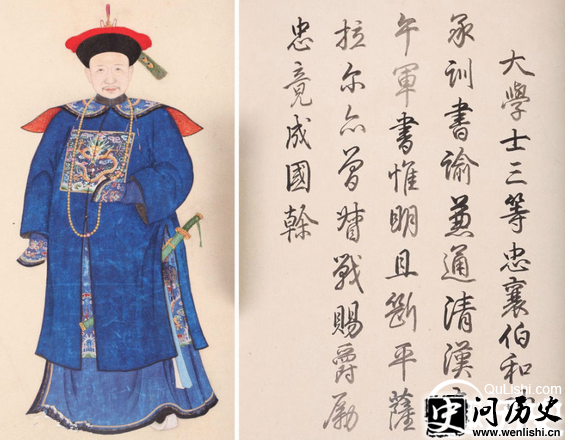 大學士三等忠襄伯和
承訓書諭兼通清漢
午軍書惟明且斷平薩
拉尔亦曾督戰賜爵励
忠竟成國幹
QuLishi.com
问历史
www.wenlishi.cn